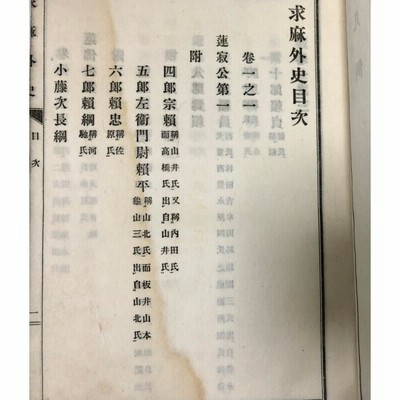 求麻外史目次
卷一之一
蓮寂公第一
附
四郎宗賴 稱山井氏又稱內田氏
而高橋氏出自山井氏
五郎左衞門尉賴平 稱山北氏而板井山本
山三氏出自山北氏
六郎賴忠 稱佐
原氏
七郎賴綱 稱河
馳氏
小藤次長綱
麻外史
目次
二